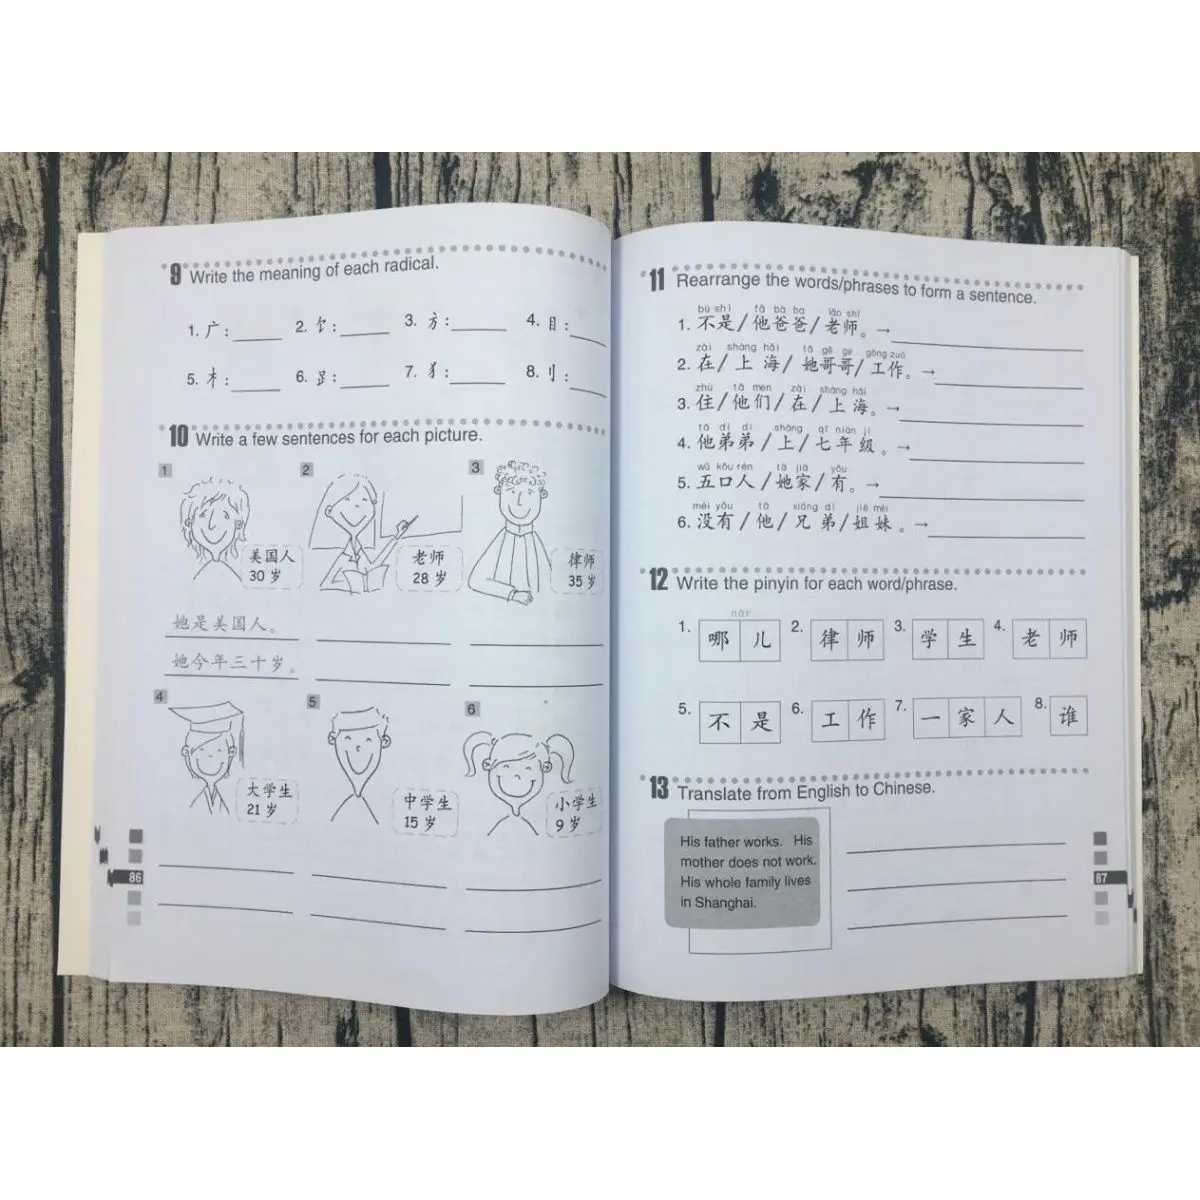 9 Write the meaning of each radical.
1. 广: 2. 饣: 3. 方: 4. 目:
5. 木: 6. 𧾷: 7. 犭: 8. 刂:
10 Write a few sentences for each picture.
1 2 3
美国人
30 岁
老师
28 岁
律师
35 岁
她是美国人。
她今年三十岁。
4 5 6
大学生
21 岁
中学生
15 岁
小学生
9 岁
86
11 Rearrange the words/phrases to form a sentence.
bú shì tā bà ba lǎo shī
1. 不是/他爸爸/老师。→
zài shàng hǎi tā gē ge gōng zuò
2. 在/上海/她哥哥/工作。→
zhù tā men zài shàng hǎi
3. 住/他们/在/上海。→
tā dì di shàng qī nián jí
4. 他弟弟/上/七年级。→
wǔ kǒu rén tā jiā yǒu
5. 五口人/她家/有。→
méi yǒu tā xiōng dì jiě mèi
6. 没有/他/兄弟/姐妹。→
12 Write the pinyin for each word/phrase.
nǎr
1. 哪儿 2. 律师 3. 学生 4. 老师
5. 不是 6. 工作 7. 一家人 8. 谁
13 Translate from English to Chinese.
His father works. His
mother does not work.
His whole family lives
in Shanghai.
87